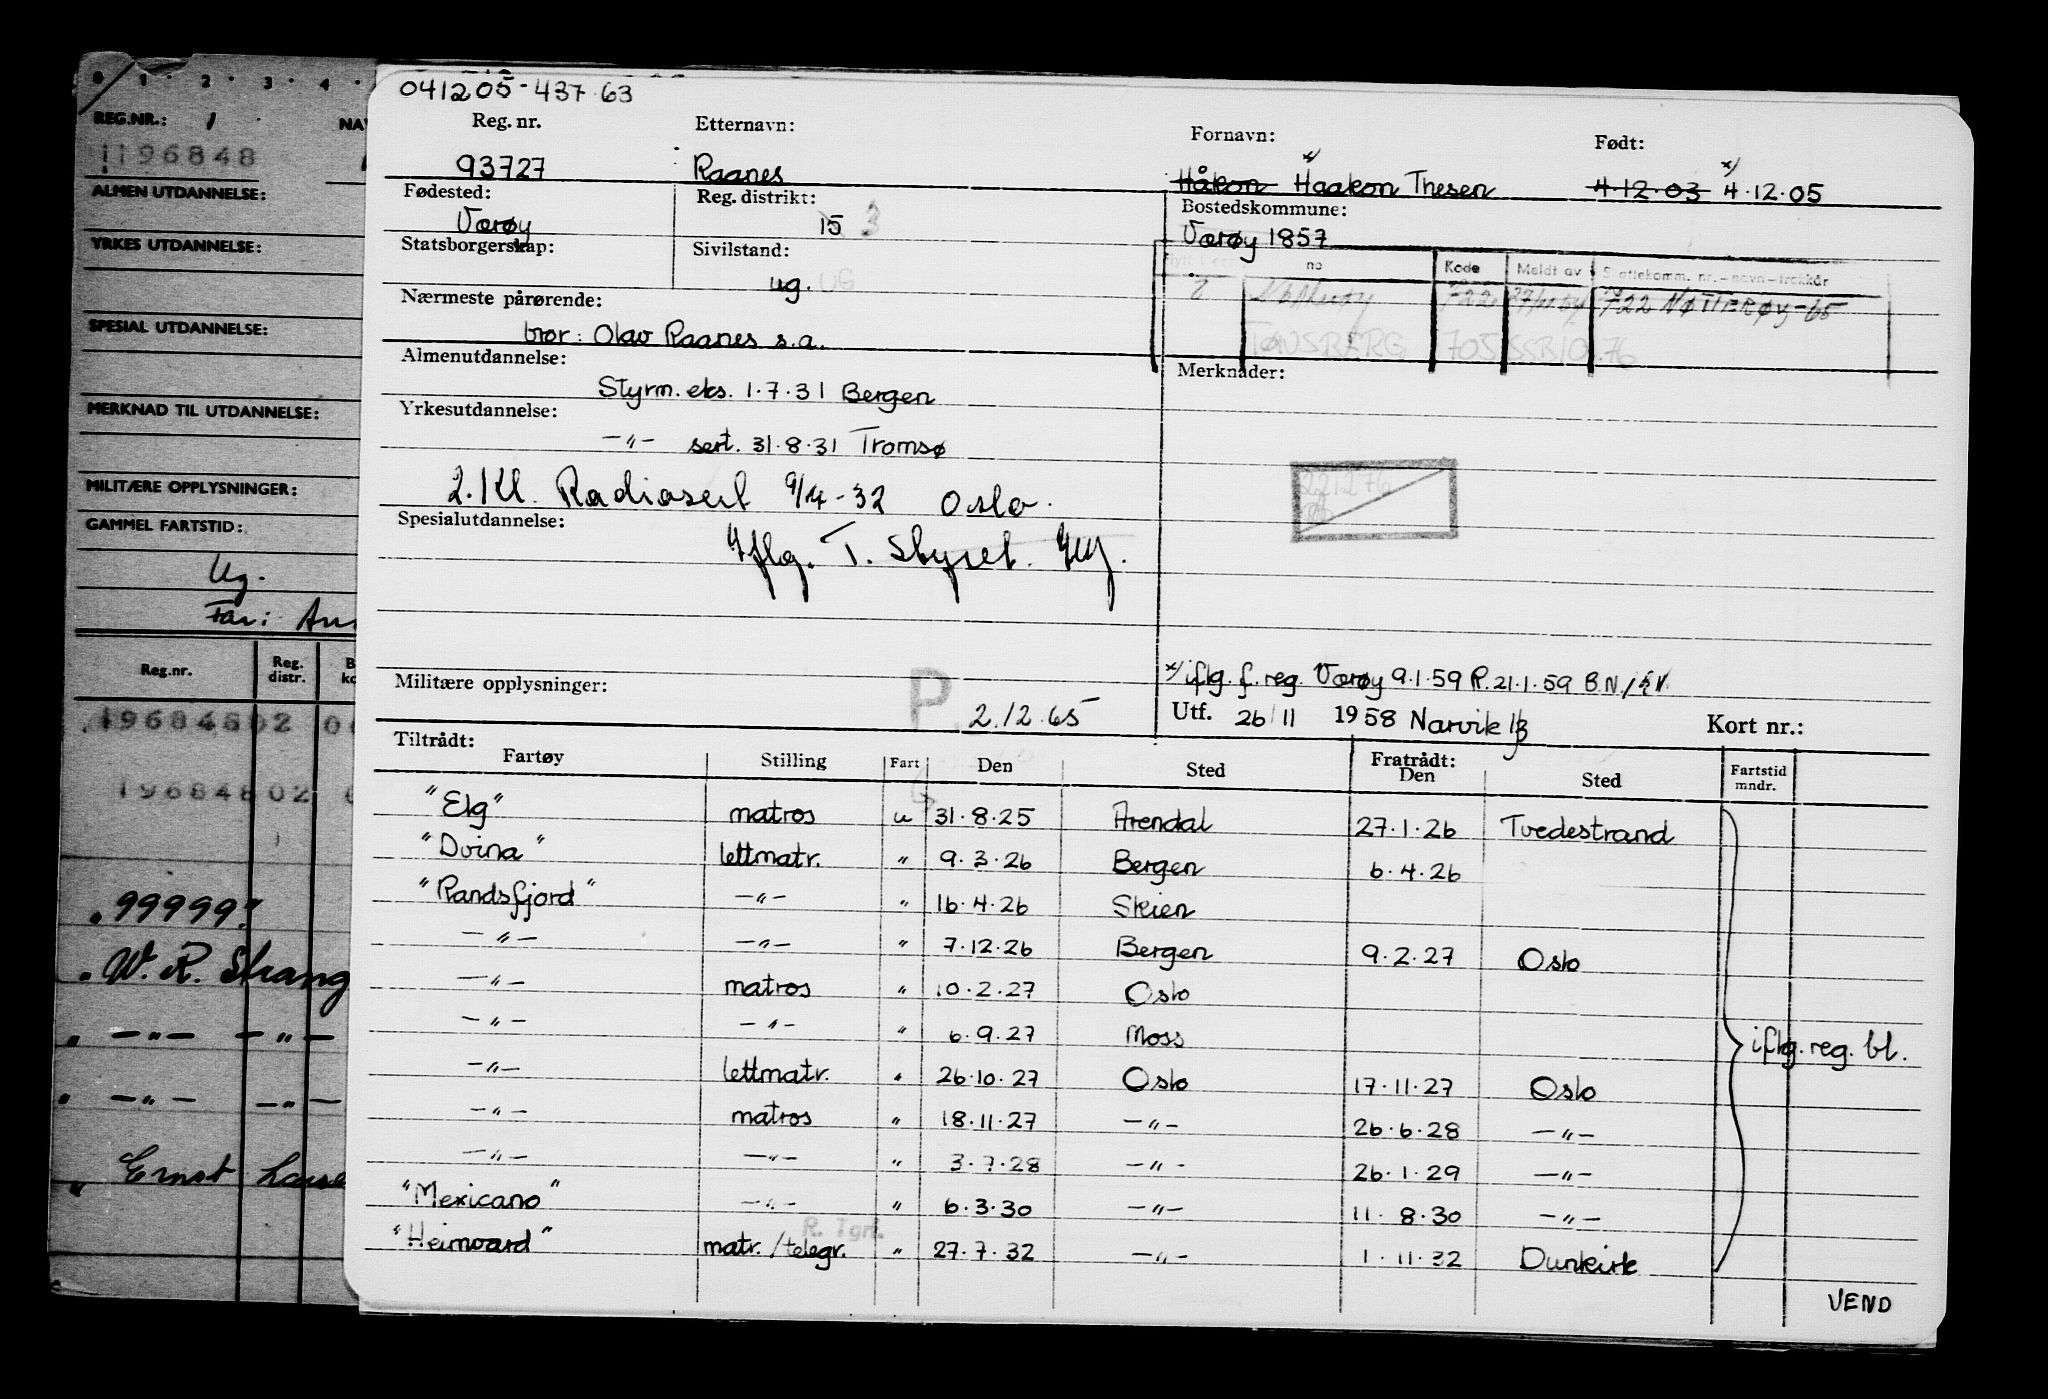 0 1 2 3 4
REG.NR.: 1 NAV
1196848
ALMEN UTDANNELSE:
YRKES UTDANNELSE:
SPESIAL UTDANNELSE:
MERKNAD TIL UTDANNELSE:
MILITÆRE OPPLYSNINGER:
GAMMEL FARTSTID:
Ug.
Far:
Reg.nr. Reg. distr.
19684802
19684802
99999?
W. R. Strang
—"— —"—
—"— —"—
Ernst
041205-437 63
Reg. nr. Etternavn: Fornavn: Født:
93727 Raanes Håkon x) Haakon Thesen 4.12.03 x) 4.12.05
Fødested: Reg. distrikt: Bostedskommune:
Værøy 15 3 Værøy 1857
Statsborgerskap: Sivilstand:
ug. UG
Kode Meldt av Skattekomm. nr.-navn-trekkår
2 722 722 NØTTERØY-65
TØNSBERG 705
Nærmeste pårørende:
bror: Olav Raanes s.a.
Almenutdannelse: Merknader:
Styrm. eks. 1.7.31 Bergen
Yrkesutdannelse:
—"— sert. 31.8.31 Tromsø
2. Kl. Radiosert 9/4-32 Oslo.
Spesialutdannelse:
x) iflg. f. reg. Værøy 9.1.59 R. 21.1.59 B.N./
Militære opplysninger: P 2.12.65
Utf. 26/11 1958 Narvik Kort nr.:
Tiltrådt: Fratrådt:
Fartøy Stilling Fart Den Sted Den Sted Fartstid mndr.
"Elg" matros u 31.8.25 Arendal 27.1.26 Tvedestrand
"Dvina" lettmatr. " 9.3.26 Bergen 6.4.26
"Randsfjord" —"— " 16.4.26 Skien
—"— —"— " 7.12.26 Bergen 9.2.27 Oslo
—"— matros " 10.2.27 Oslo
—"— —"— " 6.9.27 Moss
iflg. reg. bl.
—"— lettmatr. " 26.10.27 Oslo 17.11.27 Oslo
—"— matros " 18.11.27 —"— 26.6.28 —"—
—"— —"— " 3.7.28 —"— 26.1.29 —"—
"Mexicano" —"— " 6.3.30 —"— 11.8.30 —"—
R. Tgrf.
"Heimvard" matr./telegr. " 27.7.32 —"— 1.11.32 Dunkirk
VEND